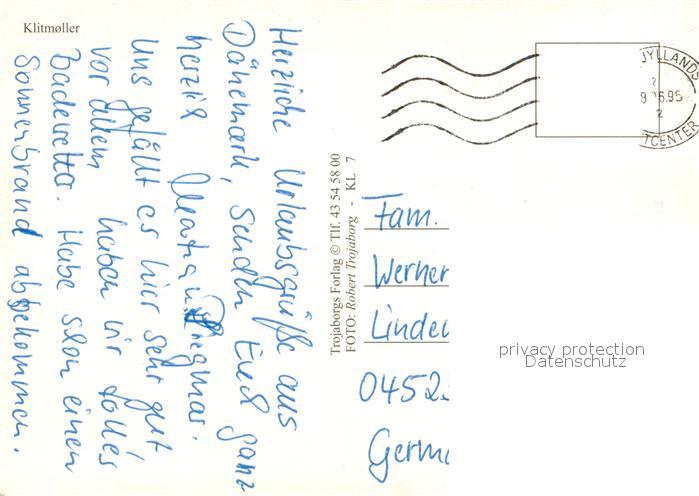 Klitmøller
Herzliche Urlaubsgrüße aus
Dänemark, senden Euch ganz
herzlich
Uns gefällt es hier sehr gut
vor allem haben wir tolles
Badewetter. Habe schon einen
Sonnenbrand abbekommen.
Trojaborgs Forlag © Tlf. 43 54 58 00
FOTO: Robert Trojaborg - KL 7
JYLLANDS
TCENTER
Fam.
Werner
Linde
0452
Germ
privacy protection
Datenschutz